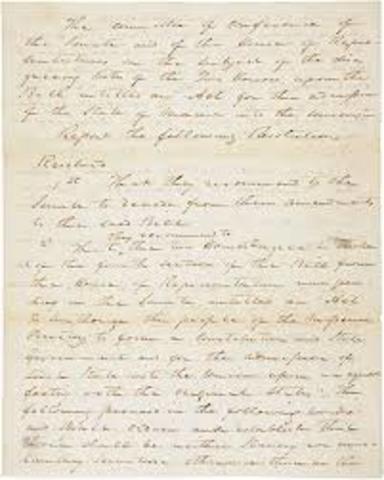 The committee of conference of
the Senate and of the House of Repre
sentatives on the subject of the disa
greeing votes of the Two Houses upon the
Bill entitled an Act for the admission
of the State of Maine into the Union
Report the following Resolution
Resolved
1st That they recommend to the
Senate to recede from their amendments
to the said Bill
2d they recommend to
That the two Houses agree to strike
out of the fourth section of the Bill from
the House of Representatives now pen
ding in the Senate entitled an Act
to authorize the people of the Missouri
to form a Constitution and State
government and for the admission of
such State into the Union upon an equal
footing with the original States, the
following proviso in the following words
and shall ordain and establish that
there shall be neither Slavery nor invo
luntary servitude otherwise than in the